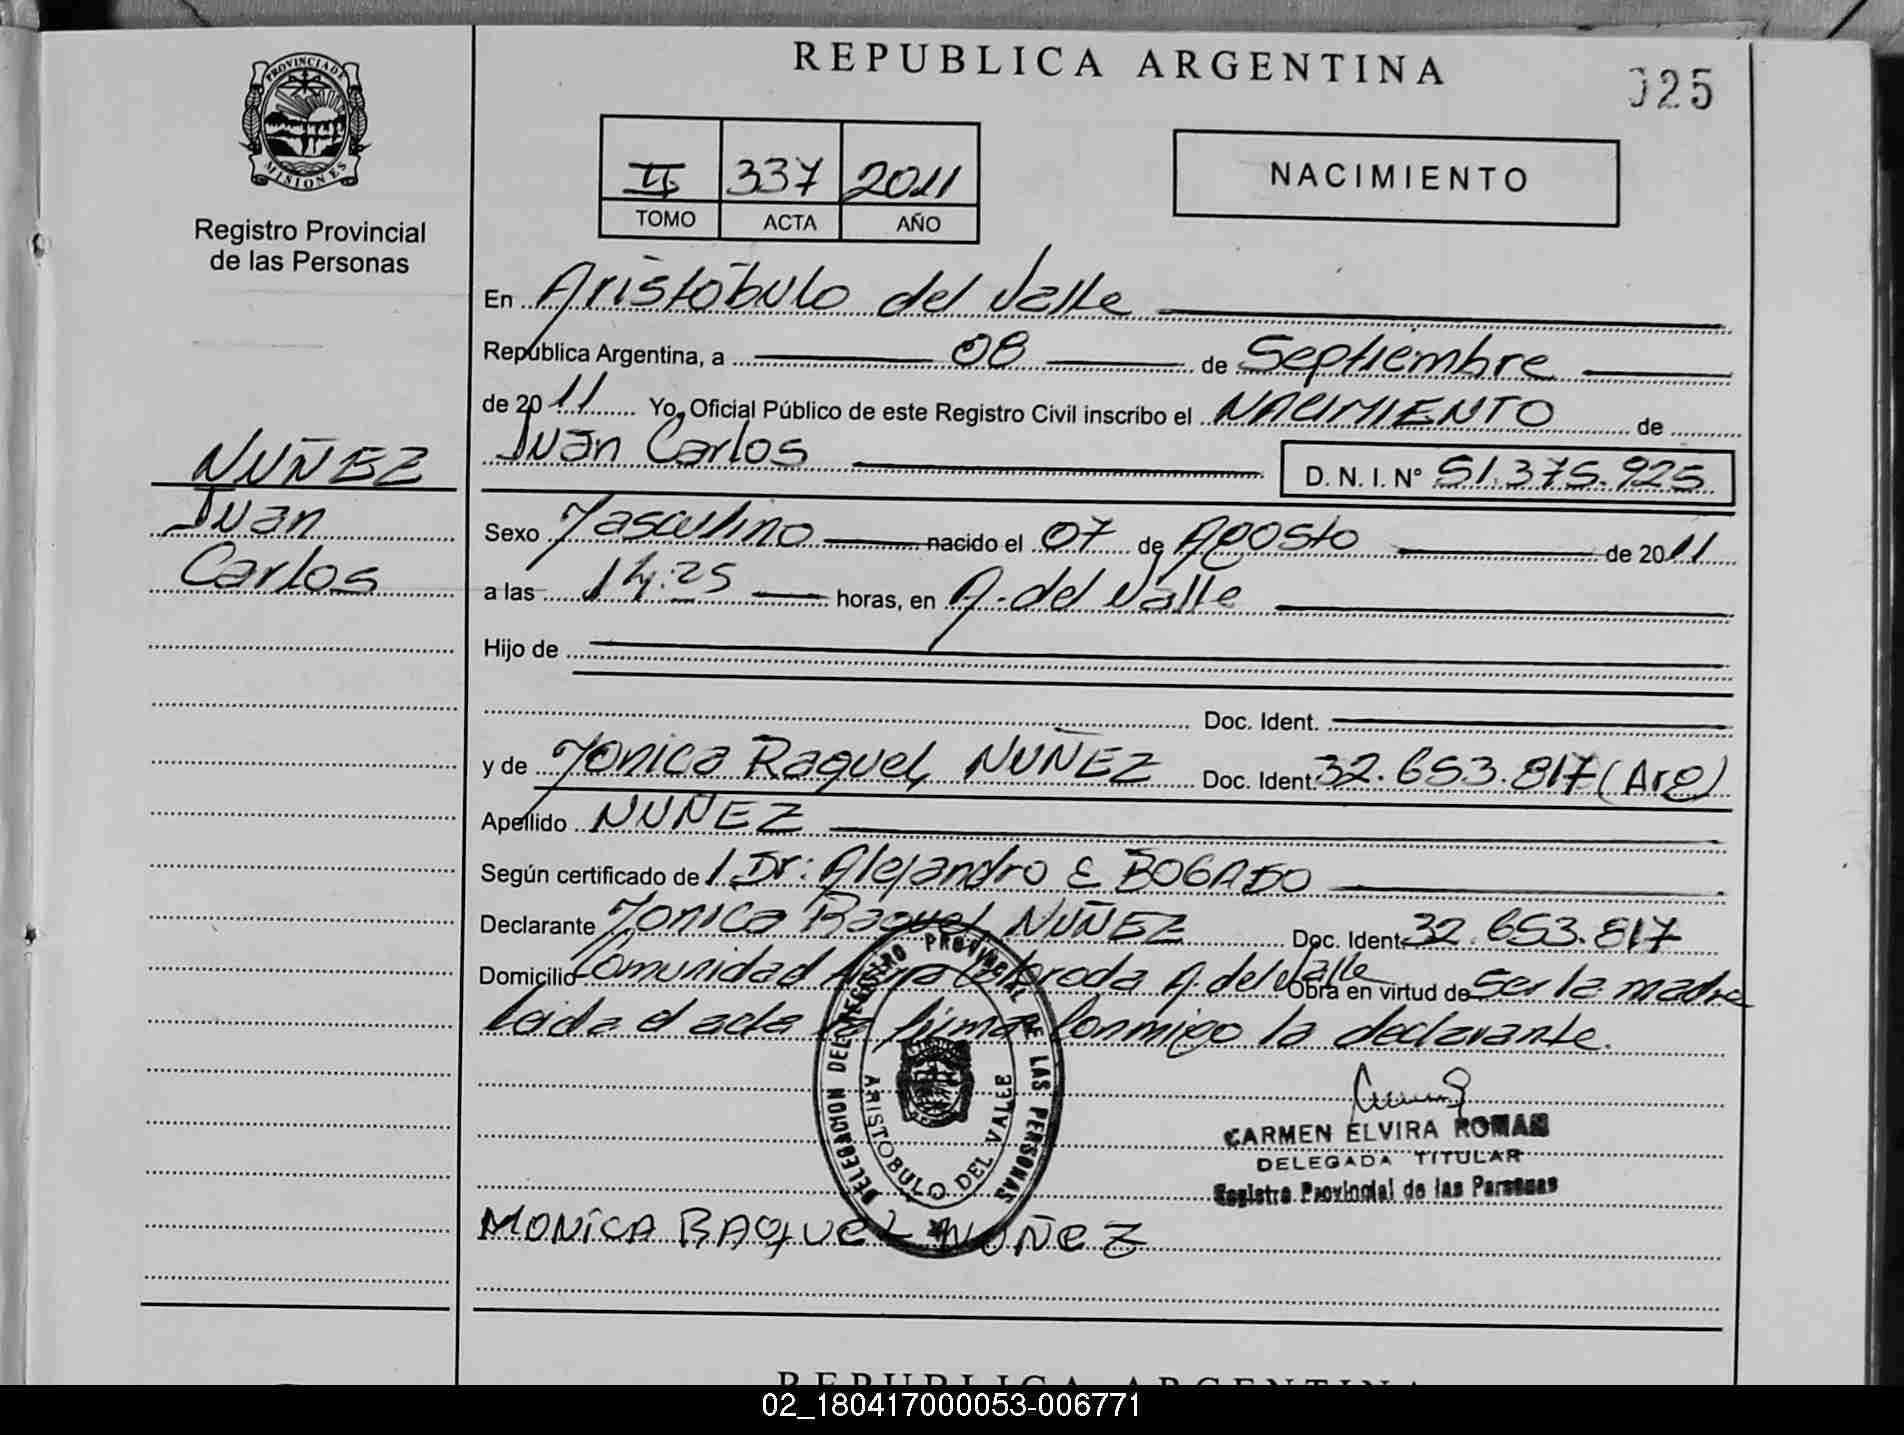 REPUBLICA ARGENTINA
025
PROVINCIA DE
MISIONES
Registro Provincial
de las Personas
II 337 2011
TOMO ACTA AÑO
NACIMIENTO
En Aristóbulo del Valle
República Argentina, a 08 de Septiembre
de 2011 Yo, Oficial Público de este Registro Civil inscribo el NACIMIENTO de
Juan Carlos D. N. I. N° 51.375.925
NUÑEZ
Juan
Carlos
Sexo Masculino nacido el 07 de Agosto de 2011
a las 14:25 horas, en A. del Valle
Hijo de
Doc. Ident.
y de Monica Raquel NUÑEZ Doc. Ident. 32.653.817 (Arg)
Apellido NUÑEZ
Según certificado de l Dr: Alejandro E BOGADO
Declarante Monica Raquel NUÑEZ Doc. Ident. 32.653.817
Domicilio Comunidad A. del Valle Obra en virtud de Ser la madre
Leida el acta la firma Conmigo la declarante.
DELEGACION DEL REGISTRO PROVINCIAL DE LAS PERSONAS
ARISTOBULO DEL VALLE
CARMEN ELVIRA ROMAN
DELEGADA TITULAR
Registro Provincial de las Personas
MONICA RAQUEL NUÑEZ
REPUBLICA ARGENTINA
02_180417000053-006771